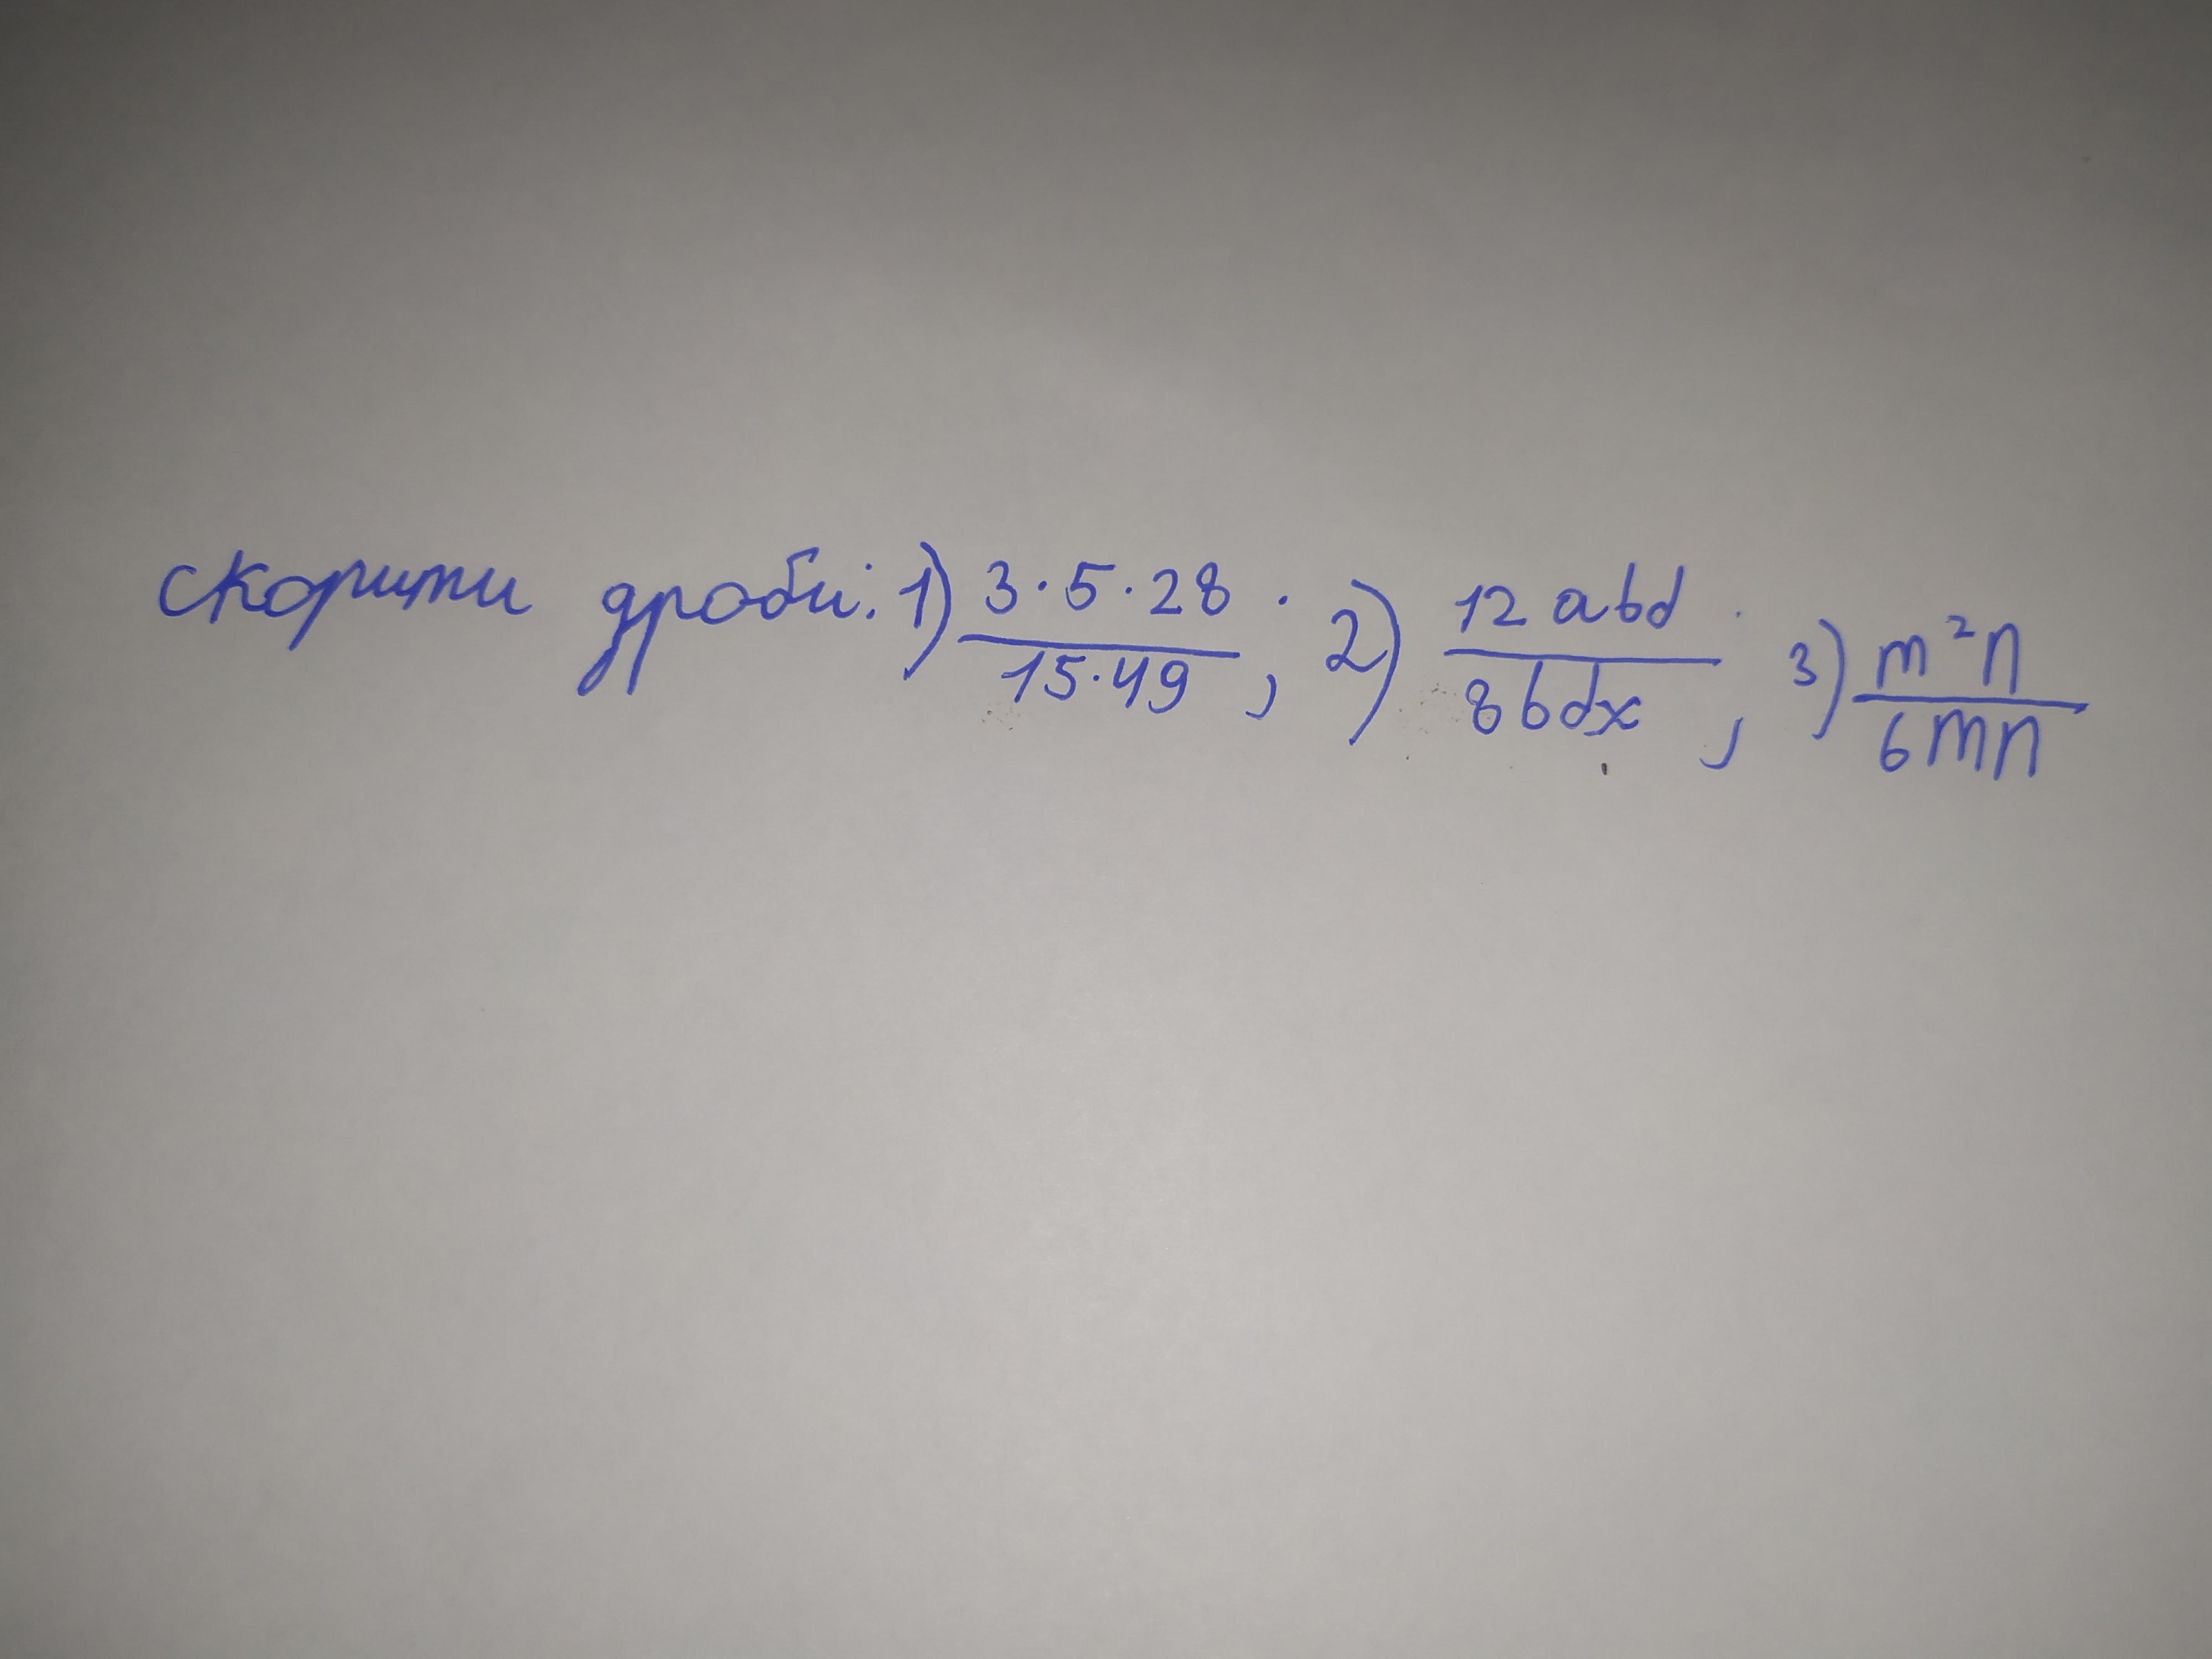 скоритти дроби: 1) 3·5·28 / 15·49 ; 2) 12abd / 8bdx ; 3) m²n / 6mn